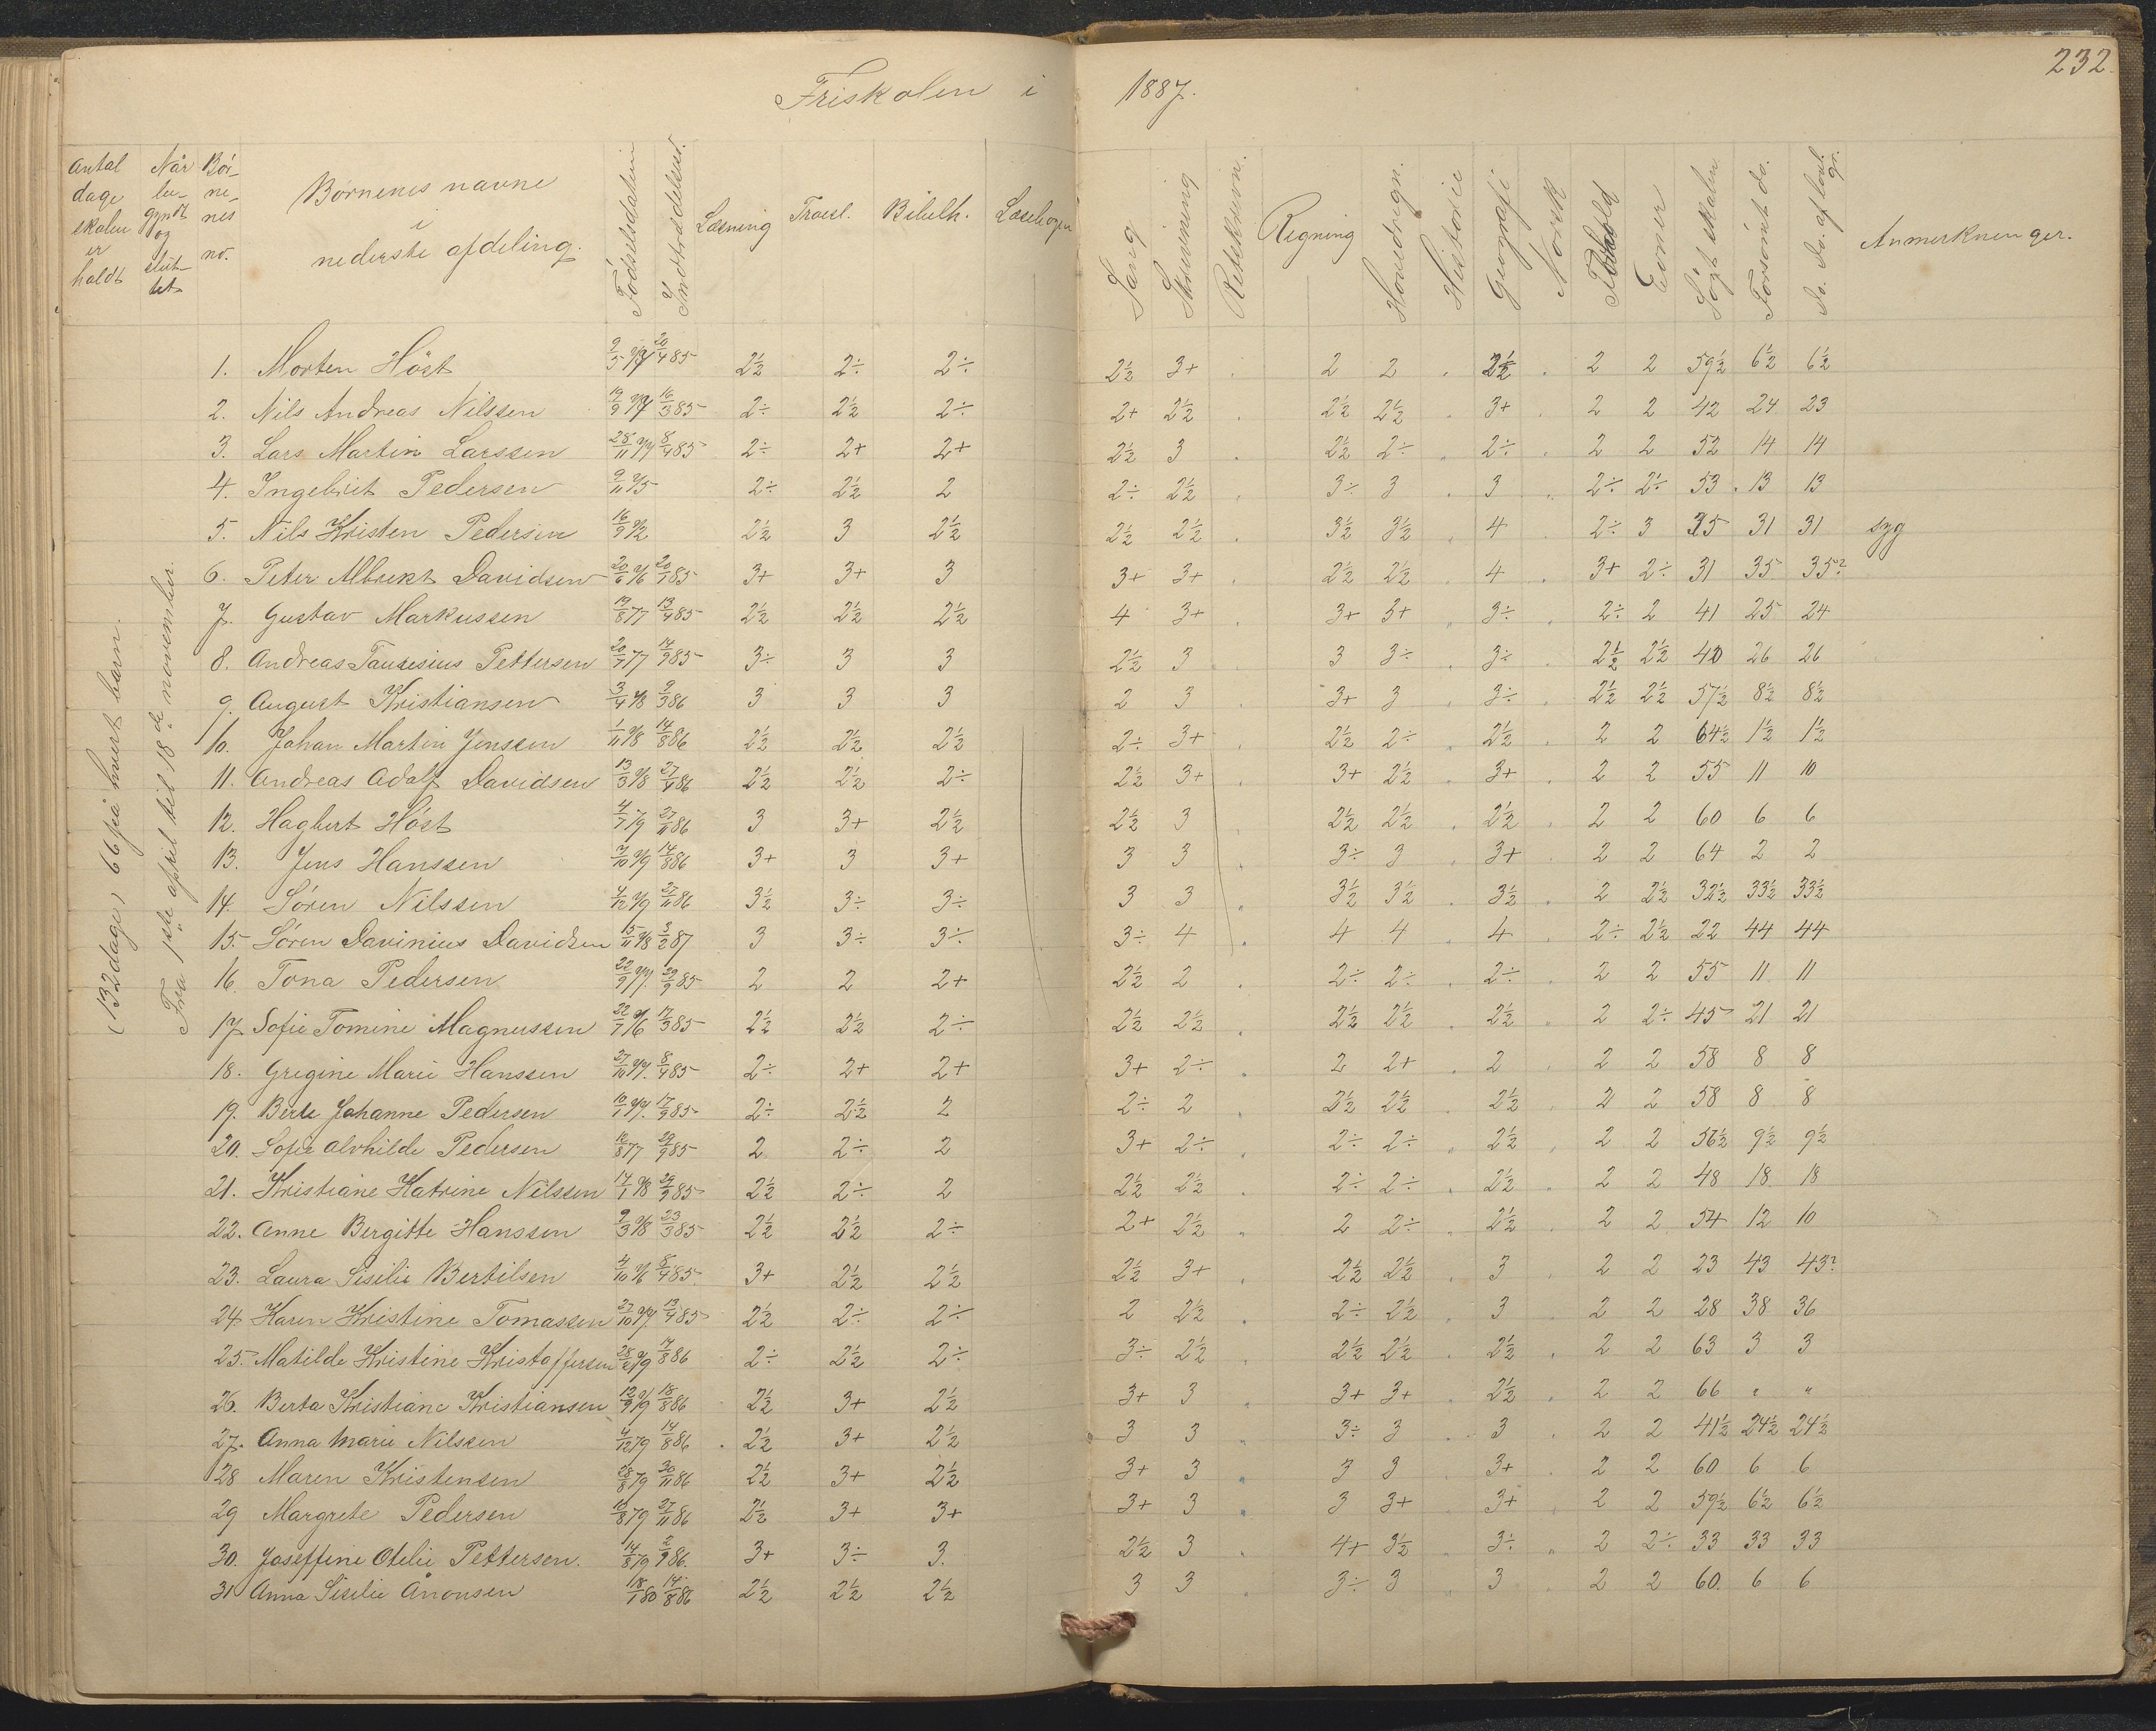 232.
Friskolen i 1887.
Antal dage skolen er holdt
Når begyndt og sluttet
Börnenes no.
Börnenes navne i nederste afdeling.
Födselsdatum
Indtrædelsesd.
Læsning
Troesl.
Bibelh.
Læsebogen
Sang
Skrivning
Rettskrivn.
Regning
Hovedregn.
Historie
Geografi
Norsk
Forhold
Evner
Sögt skolen
Forsömt do.
Do. do. af lovl. gr.
Anmerkninger.
(132 dage) 66 på hvert barn.
Fra 1ste april til 18de november.
1. Morten Höst 20/4 85 2½ 2÷ 2÷ 2½ 3+ 2 2 2½ 2 2 59½ 6½ 6½
2. Nils Andreas Nilssen 16/3 85 2÷ 2½ 2÷ 2+ 2½ 2½ 2½ 3+ 2 2 42 24 23
3. Lars Martin Larssen 28/11 8/4 85 2÷ 2+ 2+ 2½ 3 2½ 2÷ 2÷ 2 2 52 14 14
4. Ingebret Pedersen 9/11 75 2÷ 2½ 2 2÷ 2½ 3÷ 3 3 2÷ 2÷ 53 13 13
5. Nils Kristen Pedersen 16/9 72 2½ 3 2½ 2½ 2½ 3½ 3½ 4 2÷ 3 35 31 31 syg
6. Peter Albrekt Davidsen 20/6 76 20/1 85 3+ 3+ 3 3+ 3+ 2½ 2½ 4 3+ 2÷ 31 35 35?
7. Gustav Markussen 19/8 77 13/4 85 2½ 2½ 2½ 4 3+ 3+ 3+ 3÷ 2÷ 2 41 25 24
8. Andreas Pettersen 20/7 77 14/9 85 3÷ 3 3 2½ 3 3 3÷ 3÷ 2½ 2½ 40 26 26
9. August Kristiansen 3/4 78 9/3 86 3 3 3 2 3 3+ 3 3÷ 2½ 2½ 57½ 8½ 8½
10. Johan Martin Jenssen 1/11 78 14/8 86 2½ 2½ 2½ 2÷ 3+ 2½ 2÷ 2½ 2 2 64½ 1½ 1½
11. Andreas Adolf Davidsen 13/3 78 27/4 86 2½ 2½ 2÷ 2½ 3+ 3+ 2½ 3+ 2 2 55 11 10
12. Hagbert Höst 4/7 79 27/11 86 3 3+ 2½ 2½ 3 2½ 2½ 2½ 2 2 60 6 6
13. Jens Hanssen 7/10 79 14/8 86 3+ 3 3+ 3 3 3÷ 3 3+ 2 2 64 2 2
14. Sören Nilssen 4/12 79 27/11 86 3½ 3÷ 3÷ 3 3 3½ 3½ 3½ 2 2½ 32½ 33½ 33½
15. Sören Davinius Davidsen 15/11 78 3/2 87 3 3÷ 3÷ 3÷ 4 4 4 4 2÷ 2½ 22 44 44
16. Tona Pedersen 29/9 85 2 2 2+ 2½ 2 2÷ 2÷ 2÷ 2 2 55 11 11
17. Sofie Tomine Magnussen 22/7 76 17/3 85 2½ 2½ 2÷ 2½ 2½ 2½ 2½ 2½ 2 2÷ 45 21 21
18. Gregine Marie Hanssen 27/10 8/4 85 2÷ 2+ 2+ 3+ 2÷ 2 2+ 2 2 2 58 8 8
19. Berte Johanne Pedersen 17/9 85 2÷ 2½ 2 2÷ 2 2½ 2½ 2½ 2 2 58 8 8
20. Sofie Alvhilde Pedersen 12/8 77 29/9 85 2 2÷ 2 3+ 2÷ 2÷ 2÷ 2½ 2 2 56½ 9½ 9½
21. Kristiane Katrine Nilssen 14/1 78 29/9 85 2½ 2÷ 2 2½ 2½ 2÷ 2÷ 2½ 2 2 48 18 18
22. Anne Bergitte Hanssen 9/3 78 23/3 85 2½ 2½ 2÷ 2+ 2½ 2 2÷ 2½ 2 2 54 12 10
23. Laura Sisilie Bertilsen 4/10 76 8/4 85 3+ 2½ 2½ 2½ 3+ 2½ 2½ 3 2 2 23 43 43?
24 Karen Kristine Tomassen 27/10 13/4 85 2½ 2÷ 2÷ 2 2½ 2÷ 2½ 3 2 2 28 38 36
25. Matilde Kristine Kristoffersen 14/8 86 2÷ 2½ 2÷ 3÷ 2½ 2½ 2½ 2½ 2 2 63 3 3
26. Berta Kristiane Kristiansen 12/9 79 18/8 86 2½ 3+ 2½ 3+ 3 3+ 3+ 2½ 2 2 66 " "
27. Anna Marie Nilssen 4/12 79 14/8 86 2½ 3+ 2½ 3 3 3÷ 3 3 2 2 41½ 24½ 24½
28 Maren Kristensen 28/8 79 30/11 86 2½ 3+ 2½ 3+ 3 3 3 3+ 2 2 60 6 6
29 Margrete Pedersen 16/8 79 27/11 86 2½ 3+ 3+ 3+ 3 3 3+ 3+ 2 2 59½ 6½ 6½
30. Joseffine Otelie Pettersen. 14/8 79 2/9 86. 3+ 3÷ 3. 2½ 3 4+ 3½ 3÷ 2 2÷ 33 33 33
31 Anna Sisilie Aronsen 18/1 80 14/8 86 2½ 2½ 2½ 3 3 3÷ 3 3 2 2 60. 6 6